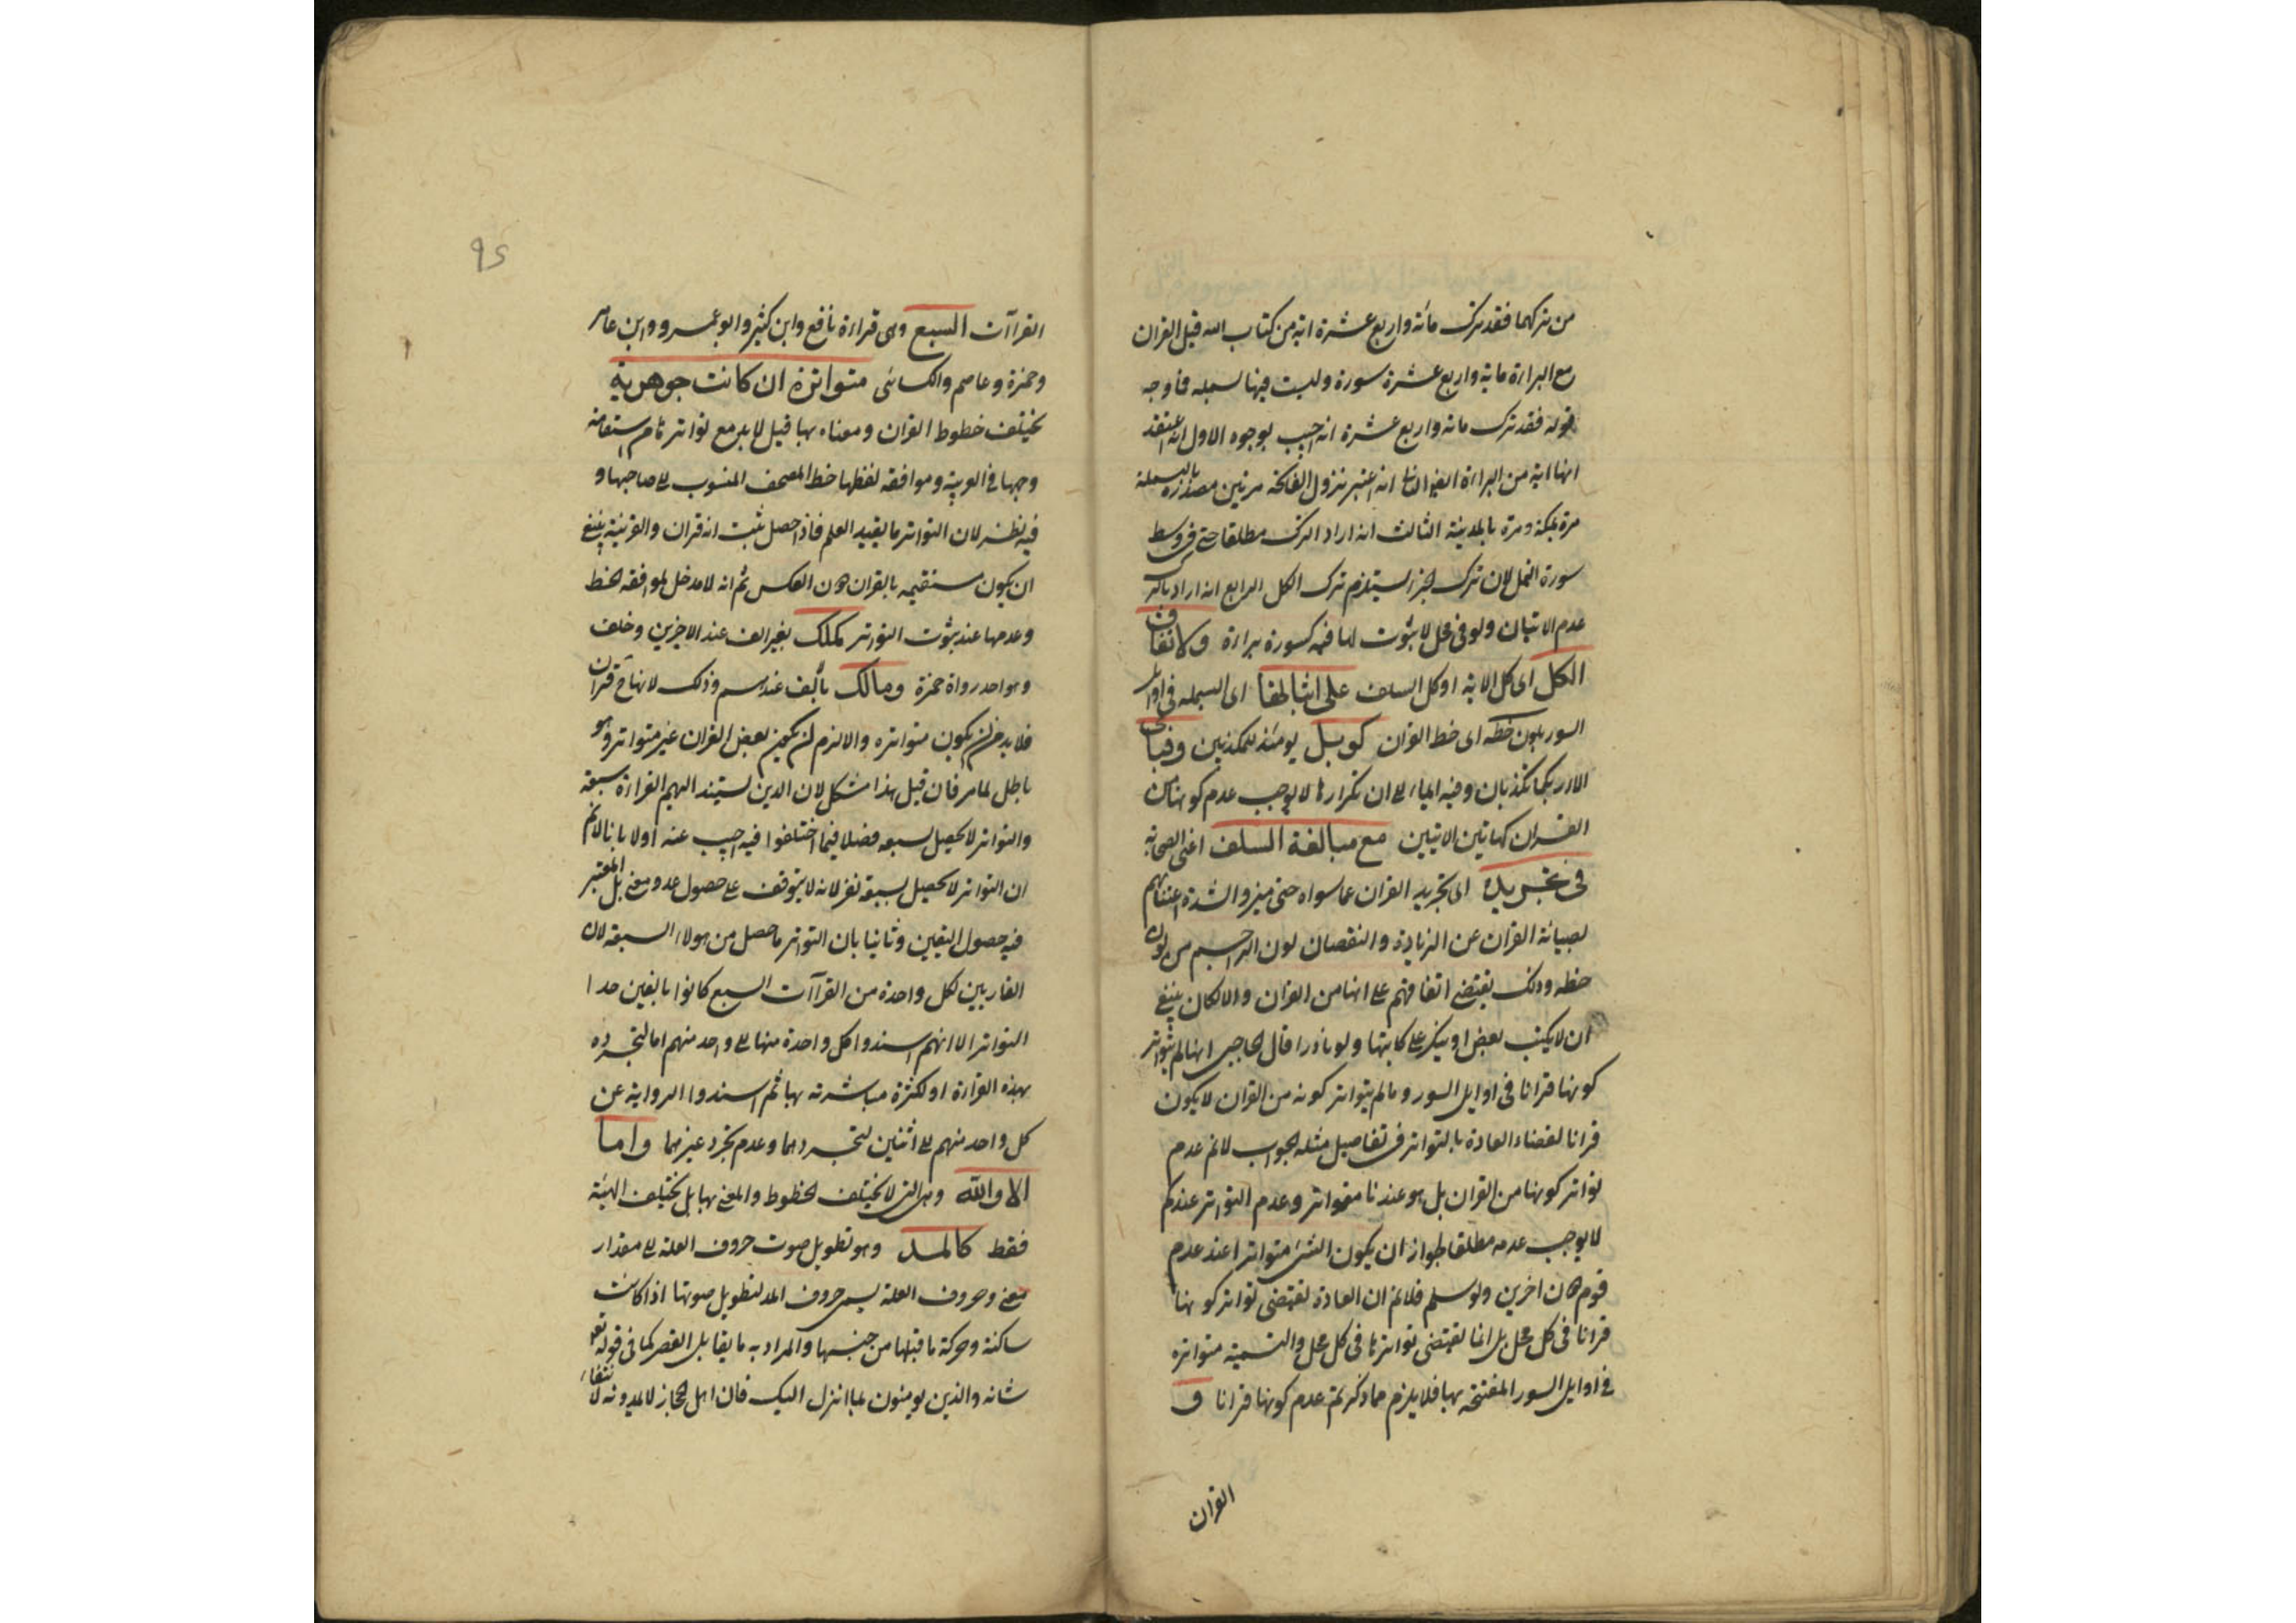 من تركها فقد ترك مائة واربع عشرة اية من كتاب الله قيل القران
مع البراءة ماية واربع عشرة سورة وليست فيها بسمله فاوجه
قوله فقد ترك ماته واربع عشرة انه اجيب بوجوه الاول انه اعتقد
انها اية من البراءة ايضا الثانى انه اعتبر نزول الفاتحة مرتين مصدرة بالبسملة
مرة بمكة ومرة بالمدينة الثالث انه اراد الترك مطلقا حتى فى وسط
سورة النمل لان ترك الجزء يستلزم ترك الكل الرابع انه اراد بالترك
عدم الاتيان ولو فى محل لا ثبوت لها فيه كسورة براءة ولاتفاق
الكل اى كل الائمة او كل السلف على اثباتها اى البسمله فى اوايل
السور بلون خطه اى خط القران كويل يومئذ للمكذبين وفباى
الاء ربكما تكذبان وفيه ايماء الى ان تكرارها لا يوجب عدم كونها من
القران كهاتين الايتين مع مبالغة السلف اعنى الصحابة
فى تجريده اى تجريد القران عما سواه حتى ميزوا لشدة اعتنائهم
بصيانة القران عن الزيادة والنقصان لون التراجم من لون
خطه وذلك يقتضى اتفاقهم على انها من القران والا لكان ينبغى
ان لا يكتب بعض او ينكر على كاتبها ولو نادرا قال الحاجبى انها لم يتواتر
كونها قرانا فى اوايل السور وما لم يتواتر كونه من القران لا يكون
قرانا لقضاء العادة بالتواتر فى تفاصيل مثله الجواب لا نم عدم
تواتر كونها من القران بل هو عندنا متواتر وعدم التواتر عندكم
لا يوجب عدمه مطلقا لجواز ان يكون الشئ متواترا عند عدم
قوم دون اخرين ولو سلم فلا نم ان العادة تقتضى تواتر كونها
قرانا فى كل محل بل انما تقتضى تواترها فى كل محل والتسمية متواترة
فى اوايل السور المفتتحة بها فلا يلزم مما ذكرتم عدم كونها قرانا و
القران
95
القراآت السبع وهى قراءة نافع وابن كثير وابو عمرو وابن عامر
وحمزة وعاصم والكسائى متواترة ان كانت جوهرية
يختلف خطوط القران ومعناه بها قيل لا بد مع تواترها من استقامة
وجهها فى العربية وموافقة لفظها خط المصحف المنسوب الى صاحبها و
فيه نظر لان التواتر ما يفيد العلم فاذا حصل ثبت انه قران والعربية ينبغى
ان يكون مستقيمه بالقران دون العكس ثم انه لا مدخل لموافقة الخط
وعدمها عند ثبوت التواتر كملك بغير الف عند الاخرين وخلف
وهو احد رواة حمزة ومالك بالف عندهم وذلك لانها ح قران
فلا بد من ان يكون متواتره والا لزم ان يكون بعض القران غير متواتر وهو
باطل لما مر فان قيل هذا مشكل لان الذين يستند اليهم القراءة سبعة
والتواتر لا يحصل بسبعه فضلا فيما اختلفوا فيه اجيب عنه اولا بانا لا نم
ان التواتر لا يحصل بسبعة نفر لانه لا يتوقف على حصول عدد معين بل المعتبر
فيه حصول اليقين وثانيا بان التواتر ما حصل من هولاء السبعة لان
القاريين لكل واحدة من القراآت السبع كانوا بالغين حد ا
التواتر الا انهم اسندوا كل واحدة منها الى واحد منهم اما لتجرده
بهذه القراءة او لكثرة مباشرته بها ثم اسندوا الرواية عن
كل واحد منهم الى اثنين لتجردهما وعدم تجرد غيرهما واما
الادائية وهى التى لا يختلف الخطوط والمعنى بها بل يختلف الهيئة
فقط كالمد وهو تطويل صوت حروف العلة الى مقدار
معين وحروف العلة يسمى حروف المد لتطويل صوتها اذا كانت
ساكنة وحركة ما قبلها من جنسها والمراد به ما يقابل القصر كما فى قوله تعه
شانه والذين يومنون بما انزل اليك فان اهل الحجاز لا يمدونه لانتفاء